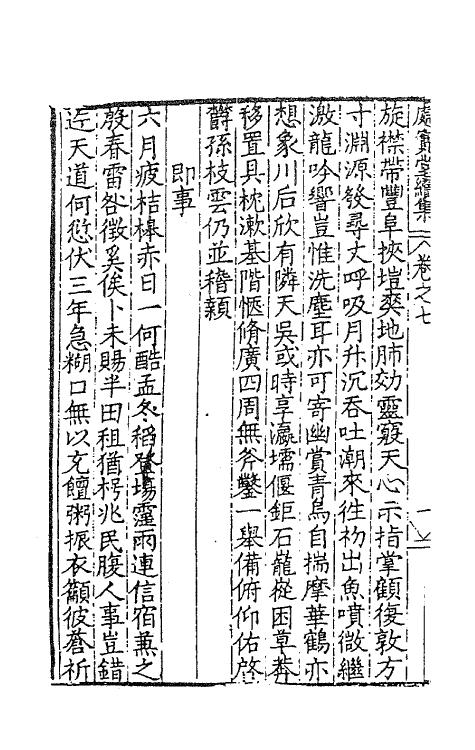 處實堂續集 卷之七 一
旋襟帶豐阜挾塏爽地肺効靈竅天心示指掌顧復敦方
寸淵源發尋丈呼吸月升沉吞吐潮來徃衪出魚噴微繼
激龍吟響豈惟洗塵耳亦可寄幽賞青烏自揣摩華鶴亦
想象川后欣有隣天吳或時享瀛壖偃鉅石蘢嵷困草莽
移置具枕漱基階愜脩廣四周無斧鑿一舉備俯仰佑啓
欝孫枝雲仍並稽顙
即事
六月疲桔槔赤日一何酷孟冬稻登場霪雨連信宿薰之
殷春雷咎徵奚俟卜未賜半田租猶枵兆民腹人事豈錯
迕天道何愆伏三年急糊口無以充饘粥振衣籲彼蒼祈